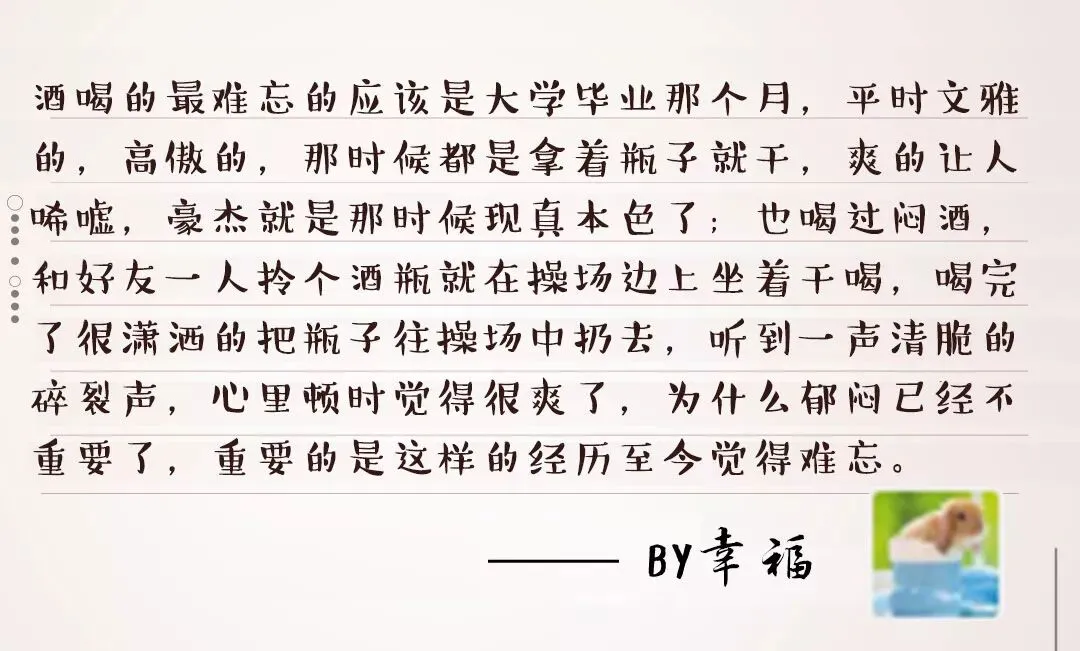 酒喝的最难忘的应该是大学毕业那个月，平时文雅
的，高傲的，那时候都是拿着瓶子就干，爽的让人
唏嘘，豪杰就是那时候现真本色了；也喝过闷酒，
和好友一人拎个酒瓶就在操场边上坐着干喝，喝完
了很潇洒的把瓶子往操场中扔去，听到一声清脆的
碎裂声，心里顿时觉得很爽了，为什么郁闷已经不
重要了，重要的是这样的经历至今觉得难忘。
—— BY幸福